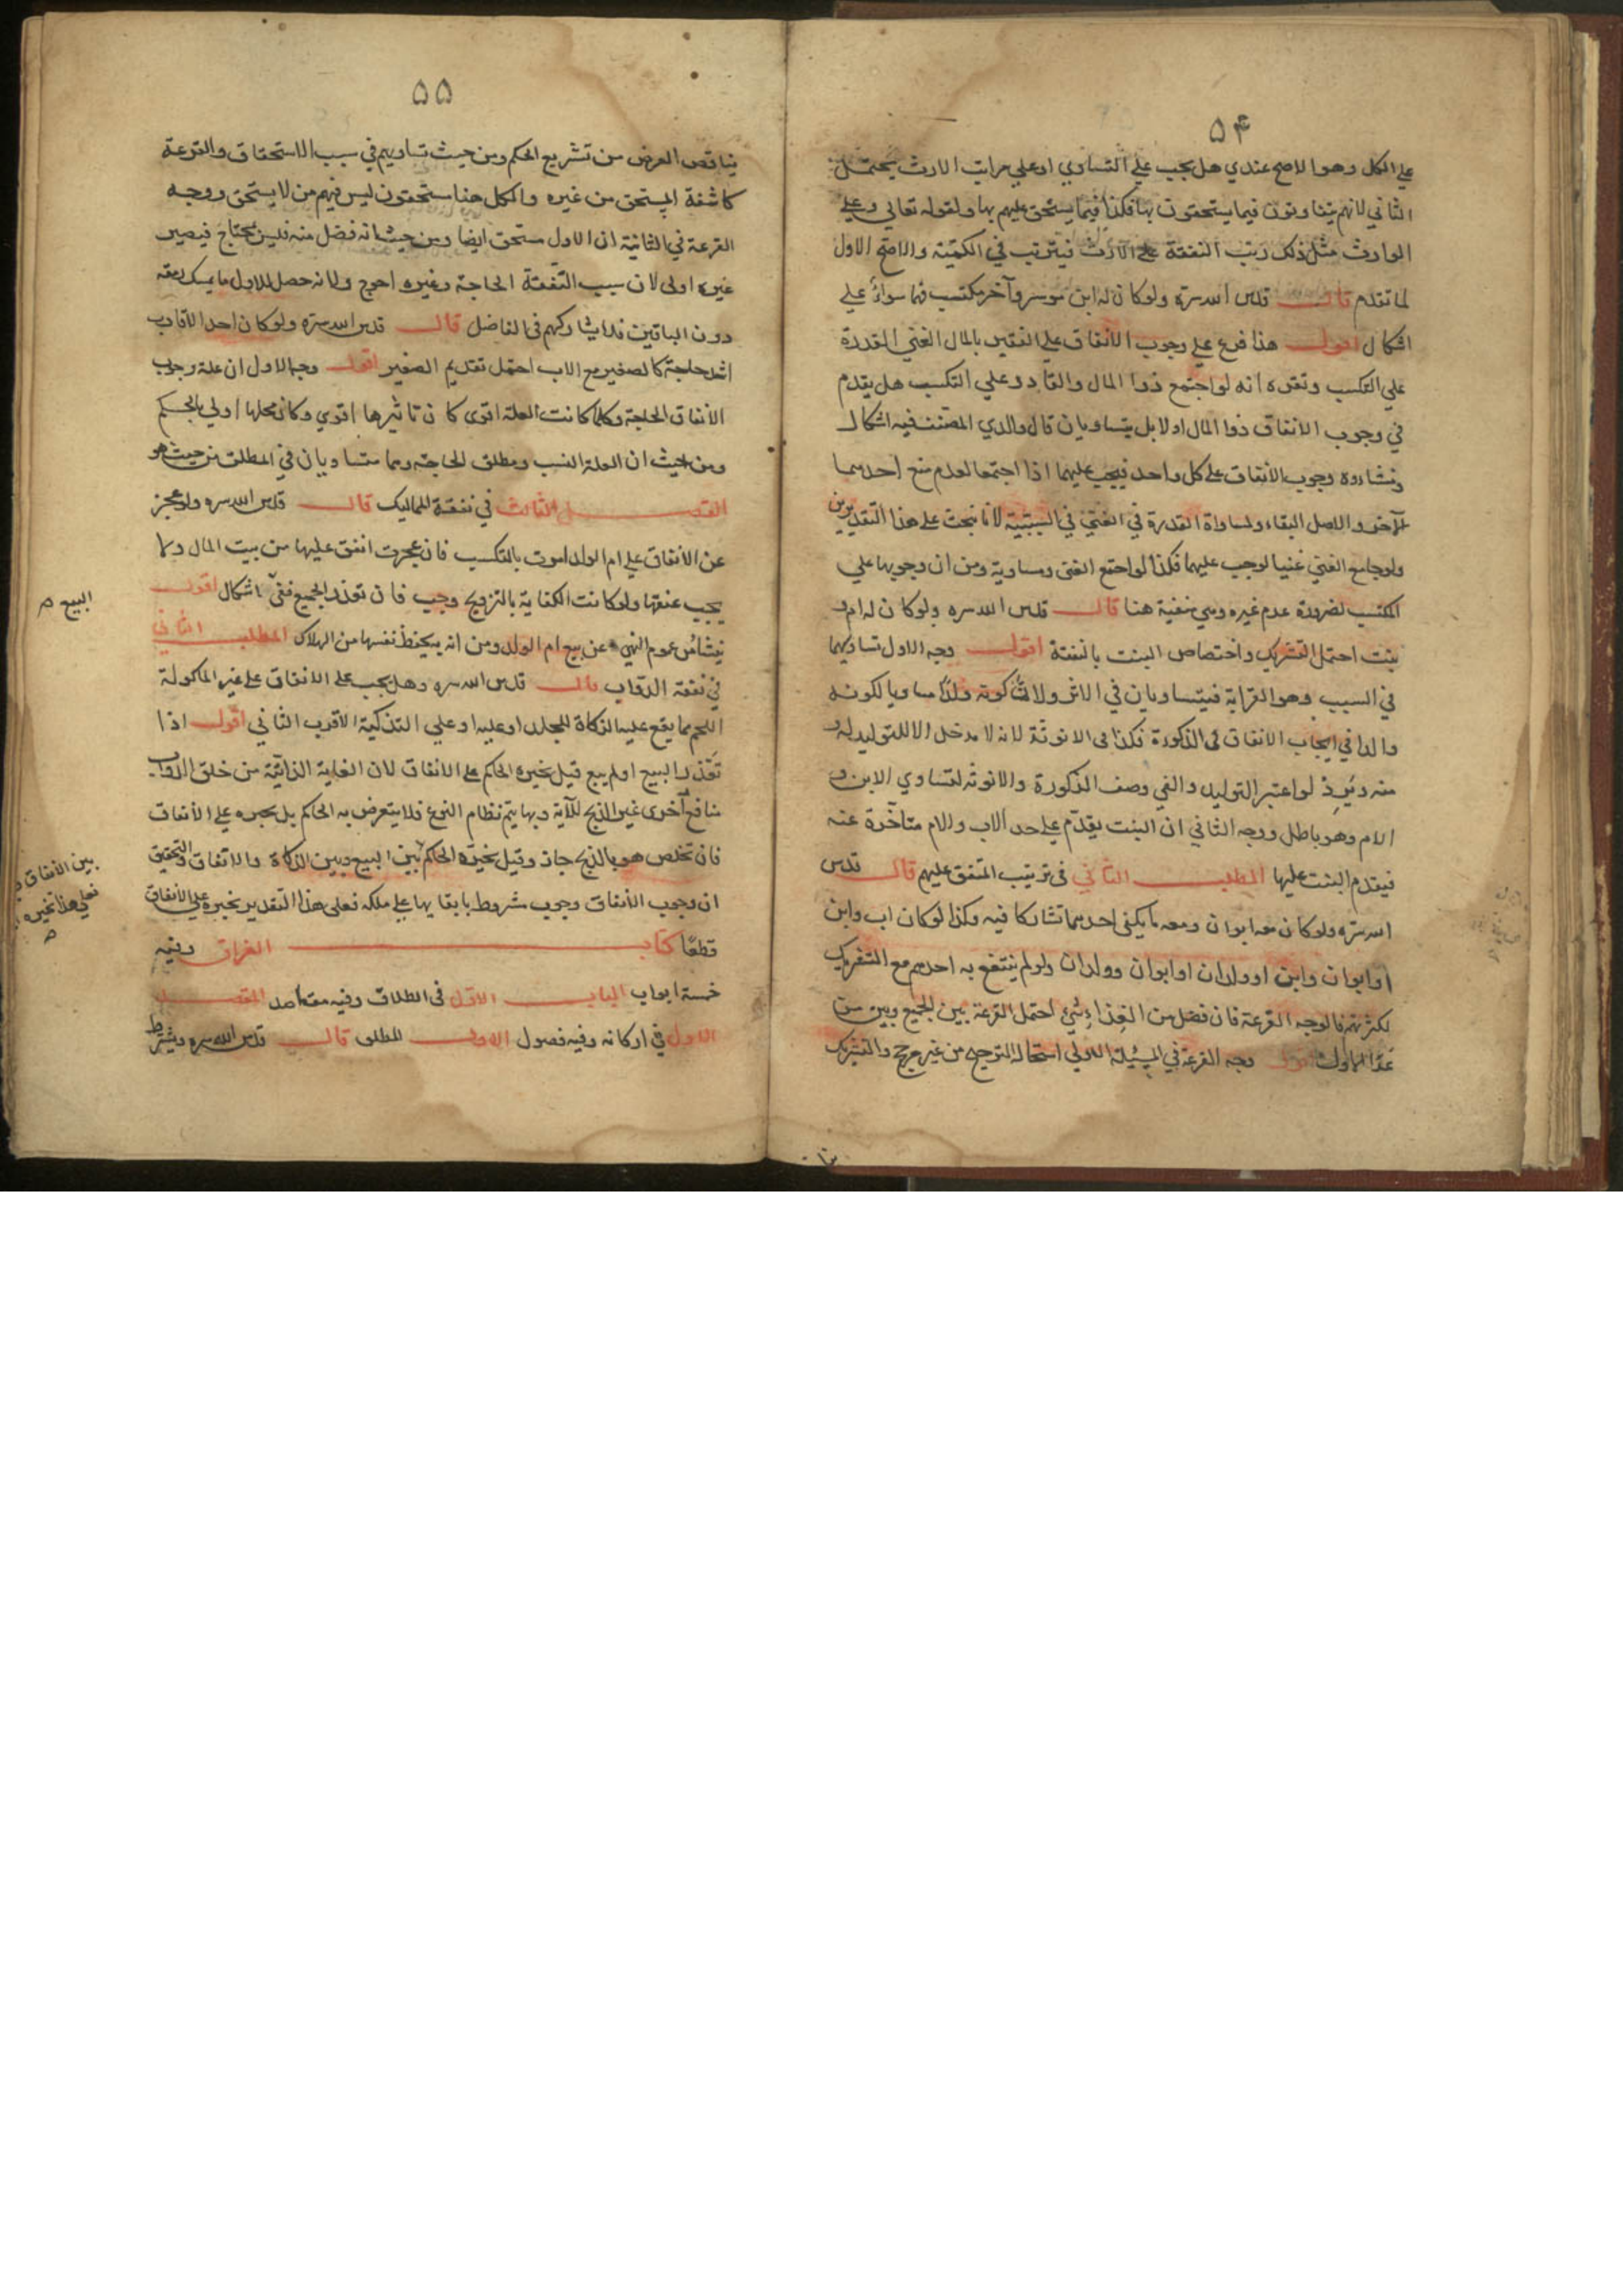 ۵۴
علي الكل وهو الاصح عندي هل يجب علي التساوي او علي مراتب الارث يحتمل
الثاني لانهم يتفاوتون فيما يستحقون بها فكذا فيما يستحق عليهم بها ولقوله تعالي وعلي
الوارث مثل ذلك رتب النفقة علي الارث فيترتب في الكمية والاصح الاول
لما تقدم قال قدس الله سره ولو كان له ابن موسر وآخر مكتسب فهما سواء علي
اشكال اقول هذا فرع علي وجوب الانفاق علي الفقير بالمال الغني المقدرة
علي التكسب وتقريره انه لو اجتمع ذوا المال والقادر علي التكسب هل يقدم
في وجوب الانفاق ذوا المال اولا بل يتساويان قال والدي المصنف فيه اشكال
ومنشاؤه وجوب الانفاق علي كل واحد فيجب عليهما اذا اجتمعا لعدم منع احدهما
الآخر والاصل البقاء ولمساواة القدرة في الغني في السببية لانا نبحث علي هذا التقدير ومن
ولو جامع الغني غنيا لوجب عليهما فكذا لو اجتمع الغني ومساويه ومن ان وجوبها علي
المكتسب لضرورة عدم غيره وهي منفية هنا قال قدس الله سره ولو كان له ام و
بنت احتمل التشريك واختصاص البنت بالنفقة اقول وجه الاول تساويهما
في السبب وهو القرابة فيتساويان في الاثر ولان ذكورة ولدا مساويا لكونه
والدا في ايجاب الانفاق في الذكورة فكذا في الانوثة لانه لا مدخل الا للتوليد له و
منه وحينئذ لو اعتبر التوليد والغي وصف الذكورة والانوثة لتساوي الابن و
الام وهو باطل ووجه الثاني ان البنت يقدم علي حد الاب والام متأخرة عنه
فيقدم البنت عليها المطلب الثاني في ترتيب المنفق عليهم قال قدس
الله سره ولو كان معه ابوان ومعه ما يكفي احدهما تشاركا فيه وكذا لو كان اب وابن
او ابوان وابن او ولدان او ابوان وولدان ولو لم ينتفع به احدهم مع التشريك
لكثرتهم فالوجه القرعة فان فضل من الغذاء شيء احتمل القرعة بين الجميع وبين من
عدا الاول اقول وجه القرعة في المسئلة الاولي استحالة الترجيح من غير مرجح والتشريك
۵۵
يناقض الغرض من تشريع الحكم ومن حيث تساويهم في سبب الاستحقاق والقرعة
كاشفة المستحق من غيره والكل هنا مستحقون ليس فيهم من لا يستحق ووجه
القرعة في الثانية ان الاول مستحق ايضا ومن حيث انه فضل منه فليس بمحتاج فيصير
غيره اولي لان سبب النفقة الحاجة وغيره احوج ولانه حصل للاول ما يمسك رمقه
دون الباقين فلا يشاركهم في الفاضل قال قدس الله سره ولو كان احد الاقارب
اشد حاجة كالصغير مع الاب احتمل تقديم الصغير اقول وجه الاول ان علة وجوب
الانفاق الحاجة وكلما كانت العلة اقوى كان تاثيرها اقوي وكان محلها اولي بالحكم
ومن حيث ان العلة النسب ومطلق الحاجة وهما متساويان في المطلق من حيث هو
الفصل الثالث في نفقة المماليك قال قدس الله سره ولو عجز
عن الانفاق علي ام الولد امرت بالتكسب فان عجزت انفق عليها من بيت المال ولا
يجب عتقها ولو كانت الكفاية بالتزويج وجب فان تعذر الجميع ففي اشكال اقول
ينشأ من عموم النهي عن بيع ام الولد ومن انه يحفظ نفسها من الهلاك المطلب الثاني
في نفقة الدواب قال قدس الله سره وهل يجب علي الانفاق علي غير الماكولة
اللحم مما يقع عليه الذكاة للجلد او عليه او علي التذكية الاقرب الثاني اقول اذا
تعذر البيع او لم يبع قيل يجبره الحاكم علي الانفاق لان الغاية الذاتية من خلق الدواب
منافع اخرى غير الذبح للآية وبها يتم نظام النوع فلا يتعرض به الحاكم بل يجبره علي الانفاق
فان تخلص هو بالذبح جاز وقيل يخيره الحاكم بين البيع وبين الذكاة والانفاق والتحقيق
ان وجوب الانفاق وجوب مشروط بابقايها علي ملكه فعلى هذا التقدير يجبره علي الانفاق
قطعا كتاب الفراق وفيه
خمسة ابواب الباب الاول في الطلاق وفيه مقاصد المقصد
الاول في اركانه وفيه فصول الاول المطلق قال قدس الله سره ويشترط
البيع م
بين الانفاق و
فعلي هذا تخييره
م